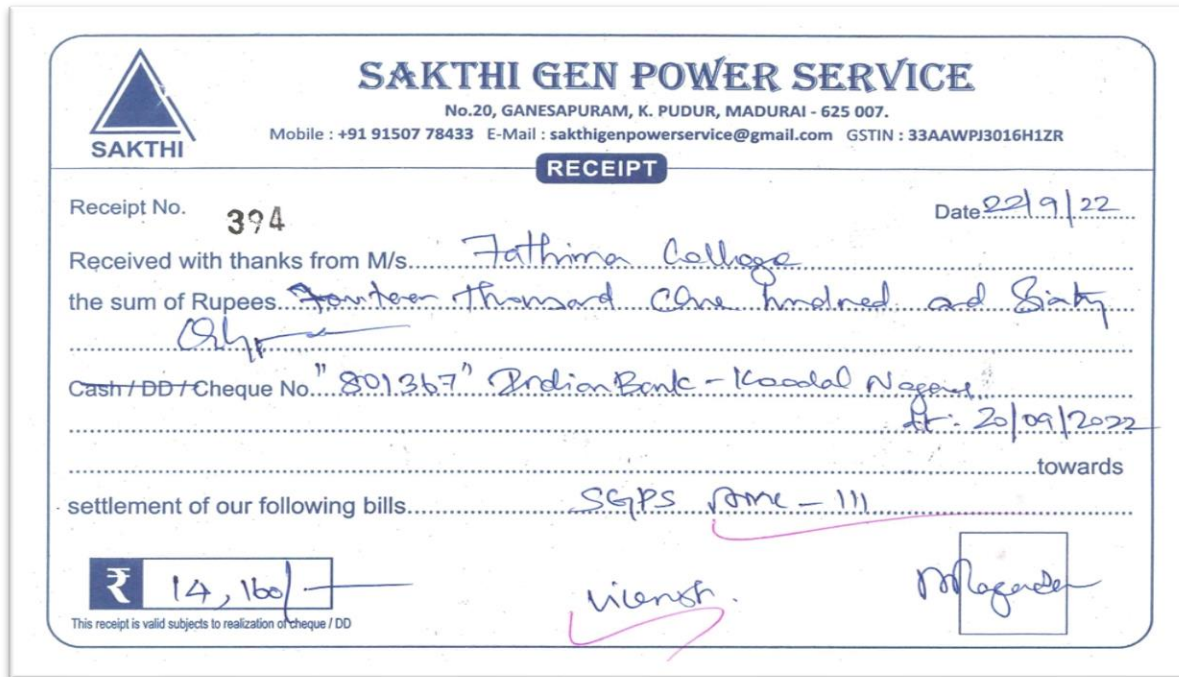 SAKTHI GEN POWER SERVICE
No.20, GANESAPURAM, K. PUDUR, MADURAI - 625 007.
Mobile : +91 91507 78433 E-Mail : sakthigenpowerservice@gmail.com GSTIN : 33AAWPJ3016H1ZR
SAKTHI
RECEIPT
Receipt No. 394 Date 22/9/22
Received with thanks from M/s. Fathima College
the sum of Rupees Fourteen Thousand One hundred and Sixty
Only
Cash / DD / Cheque No. "801367" Indian Bank - Koodal Nagar
dt: 20/09/2022
towards
settlement of our following bills SGPS AMC - 111
₹ 14,160/-
This receipt is valid subjects to realization of cheque / DD